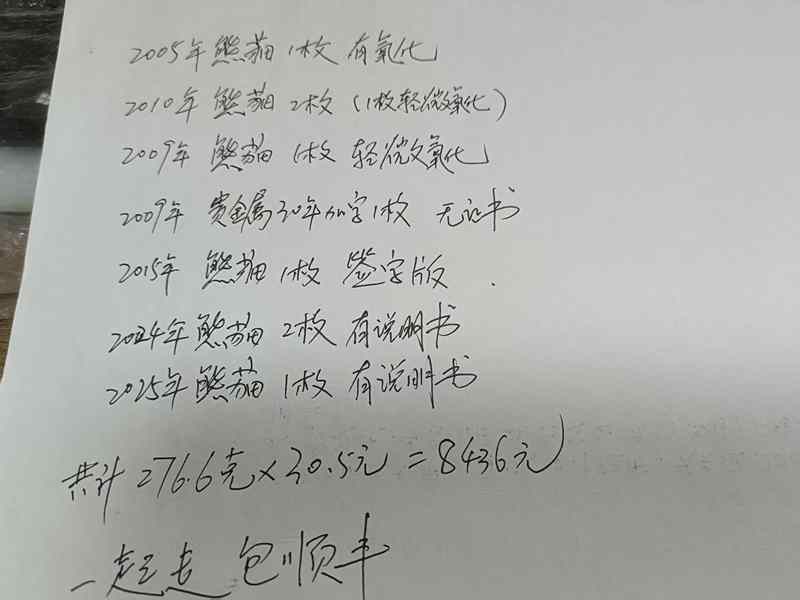 2005年 熊猫 1枚 有氧化
2010年 熊猫 2枚 (1枚轻微氧化)
2009年 熊猫 1枚 轻微氧化
2009年 贵金属30年加字1枚 无证书
2015年 熊猫 1枚 签字版.
2024年熊猫 2枚 有说明书
2025年熊猫 1枚 有说明书
共计 276.6克×30.5元=8436元
一起走 包顺丰